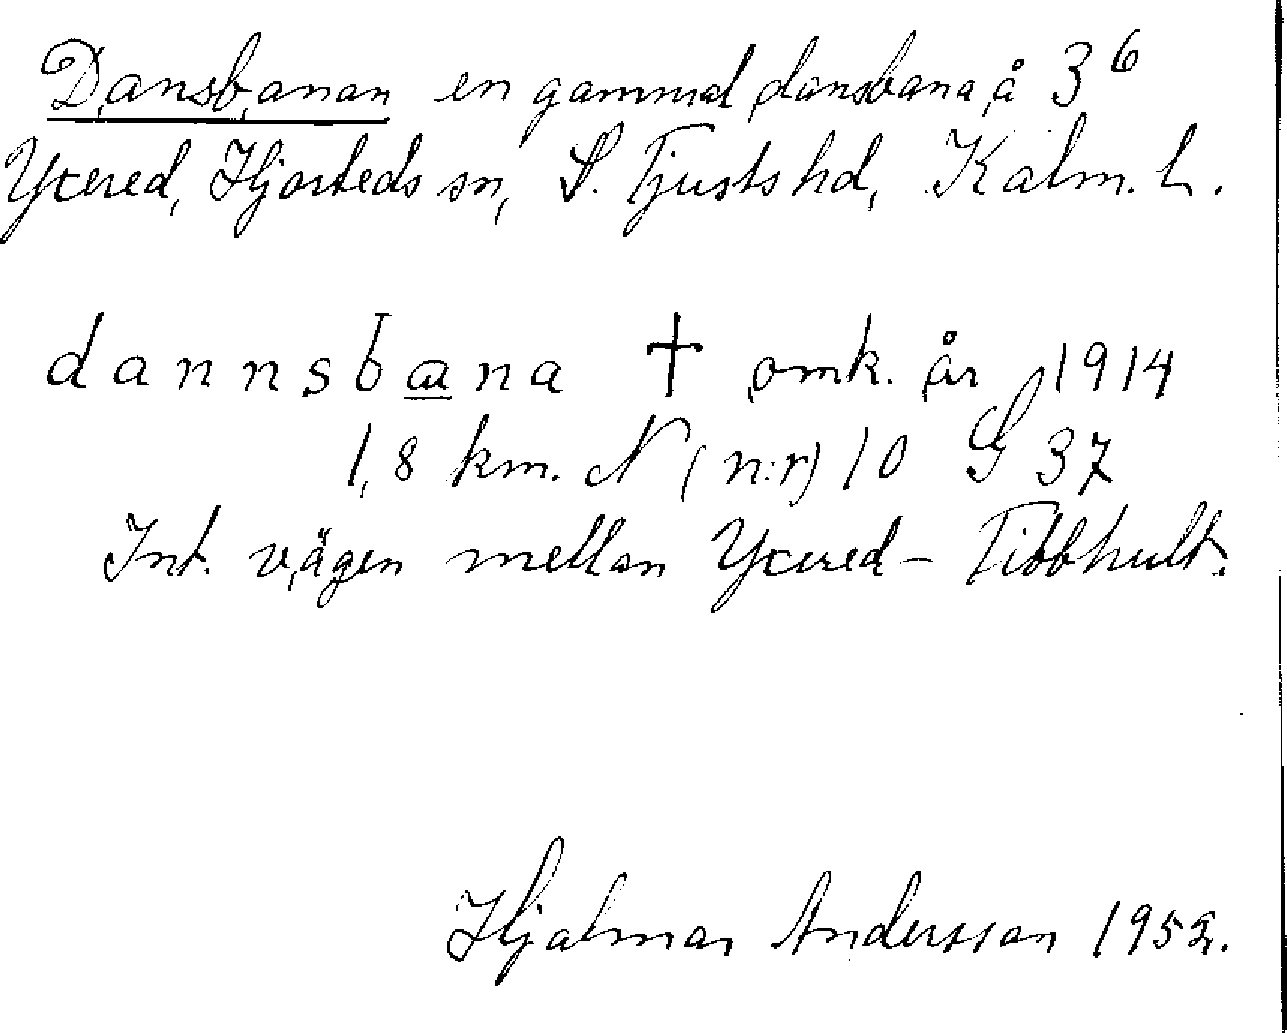 Dansbanan en gammal dansbana å 3⁶
Yxered, Hjorteds sn, S. Tjusts hd, Kalm. L.
dannsbana † omk. år 1914
1,8 km. N (n:r) 10 G 37
Int. vägen mellan Yxered – Tibbhult.
Hjalmar Andersson 1952.